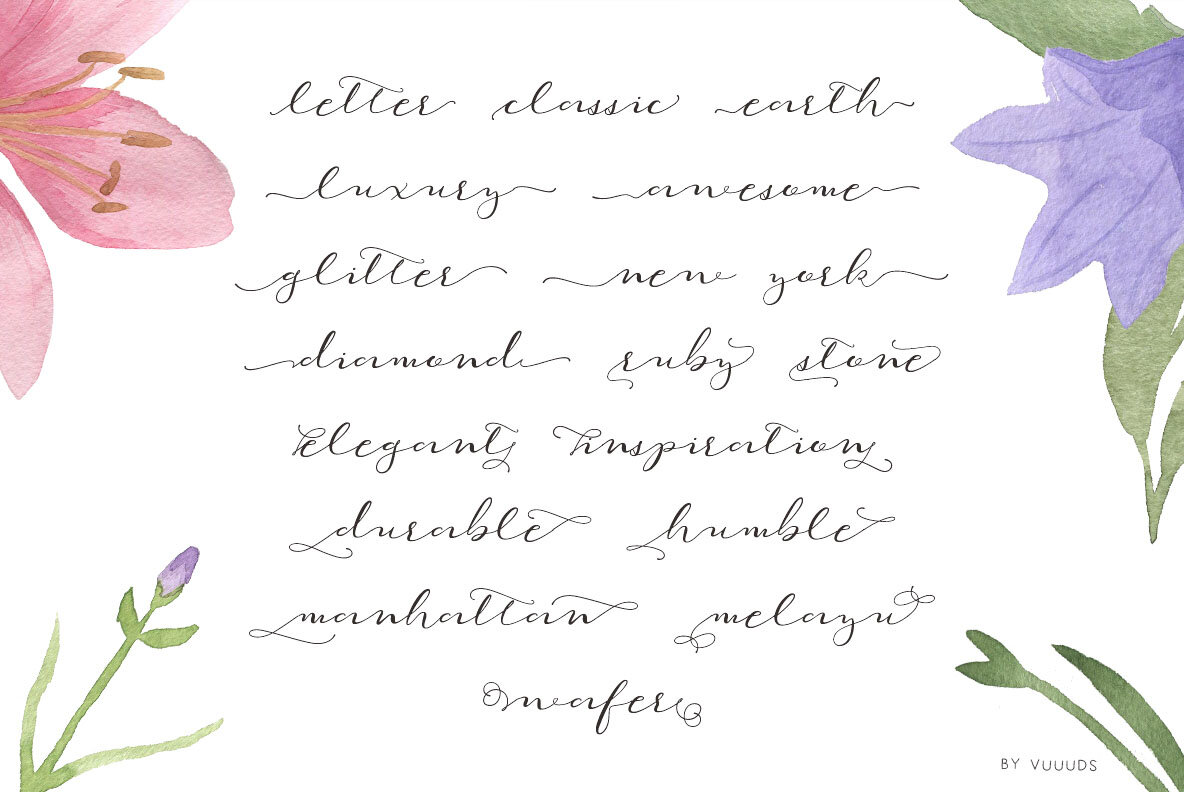 letter classic earth
luxury awesome
glitter new york
diamond ruby stone
elegant inspiration
durable humble
manhattan melayu
wafer
BY VUUUDS